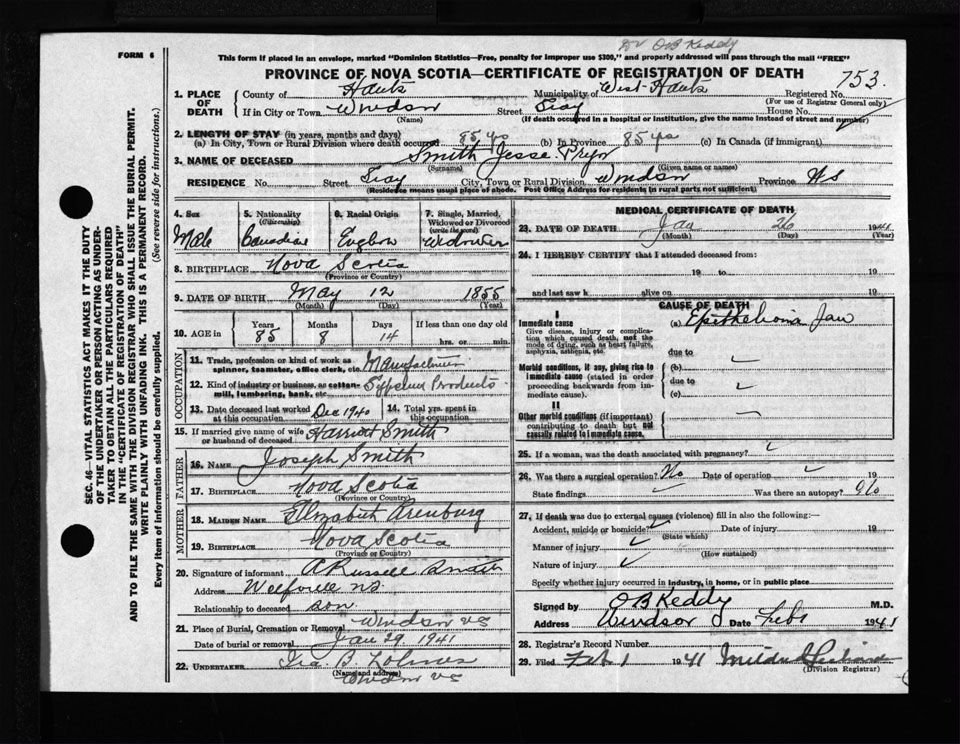 Dr OB Keddy
FORM 6
This form if placed in an envelope, marked "Dominion Statistics—Free, penalty for improper use $300," and properly addressed will pass through the mail "FREE"
PROVINCE OF NOVA SCOTIA—CERTIFICATE OF REGISTRATION OF DEATH
753
1. PLACE OF DEATH
County of Hants Municipality of West Hants Registered No.
(For use of Registrar General only)
If in City or Town Windsor Street Gray House No.
(Name) (If death occurred in a hospital or institution, give the name instead of street and number)
2. LENGTH OF STAY (in years, months and days)
(a) In City, Town or Rural Division where death occurred 85 yrs (b) in Province 85 yrs (c) In Canada (if immigrant)
3. NAME OF DECEASED Smith Jesse Pryor
(Surname) (Given name or names)
RESIDENCE No. Street Gray City, Town or Rural Division Windsor Province NS
(Residence means usual place of abode. Post Office Address for residents in rural parts not sufficient)
4. Sex
Male
5. Nationality (Citizenship)
Canadian
6. Racial Origin
English
7. Single, Married, Widowed or Divorced (write the word)
Widower
8. BIRTHPLACE Nova Scotia
(Province or Country)
9. DATE OF BIRTH May 12 1855
(Month) (Day) (Year)
10. AGE in Years Months Days If less than one day old
85 8 14 hrs. or min.
OCCUPATION
11. Trade, profession or kind of work as spinner, teamster, office clerk, etc. Manufacturer
12. Kind of industry or business, as cotton-mill, lumbering, bank, etc. Gypsum Products
13. Date deceased last worked at this occupation Dec 1940
14. Total yrs. spent in this occupation
15. If married give name of wife or husband of deceased Harriett Smith
FATHER
16. NAME Joseph Smith
17. BIRTHPLACE Nova Scotia
(Province or Country)
MOTHER
18. MAIDEN NAME Elizabeth Arenburg
19. BIRTHPLACE Nova Scotia
(Province or Country)
20. Signature of informant A Russell Smith
Address Wolfville NS
Relationship to deceased son
21. Place of Burial, Cremation or Removal Windsor NS
Date of burial or removal Jan 29 1941
22. UNDERTAKER Ira B
(Name and address)
Windsor NS
MEDICAL CERTIFICATE OF DEATH
23. DATE OF DEATH Jan 26 1941
(Month) (Day) (Year)
24. I HEREBY CERTIFY that I attended deceased from:
19 to 19
and last saw h alive on 19
CAUSE OF DEATH
I
Immediate cause
Give disease, injury or complication which caused death, not the mode of dying, such as heart failure, asphyxia, asthenia, etc.
(a) Epithelioma Jaw
due to
Morbid conditions, if any, giving rise to immediate cause (stated in order proceeding backwards from immediate cause).
(b)
due to
(c)
II
Other morbid conditions (if important) contributing to death but not causally related to immediate cause.
25. If a woman, was the death associated with pregnancy?
26. Was there a surgical operation? No Date of operation 19
State findings Was there an autopsy? No
27. If death was due to external causes (violence) fill in also the following:—
Accident, suicide or homicide? Date of injury 19
(State which)
Manner of injury
(How sustained)
Nature of injury
Specify whether injury occurred in industry, in home, or in public place
Signed by OB Keddy M.D.
Address Windsor Date Feb 1 1941
28. Registrar's Record Number
29. Filed Feb 1 1941 Mildred
(Division Registrar)
SEC. 46—VITAL STATISTICS ACT MAKES IT THE DUTY
OF THE UNDERTAKER OR PERSON ACTING AS UNDER-
TAKER TO OBTAIN ALL THE PARTICULARS REQUIRED
IN THE "CERTIFICATE OF REGISTRATION OF DEATH"
AND TO FILE THE SAME WITH THE DIVISION REGISTRAR WHO SHALL ISSUE THE BURIAL PERMIT.
WRITE PLAINLY WITH UNFADING INK. THIS IS A PERMANENT RECORD.
Every item of information should be carefully supplied. (See reverse side for instructions.)